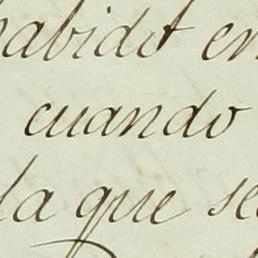 habidet en
cuando
la que se